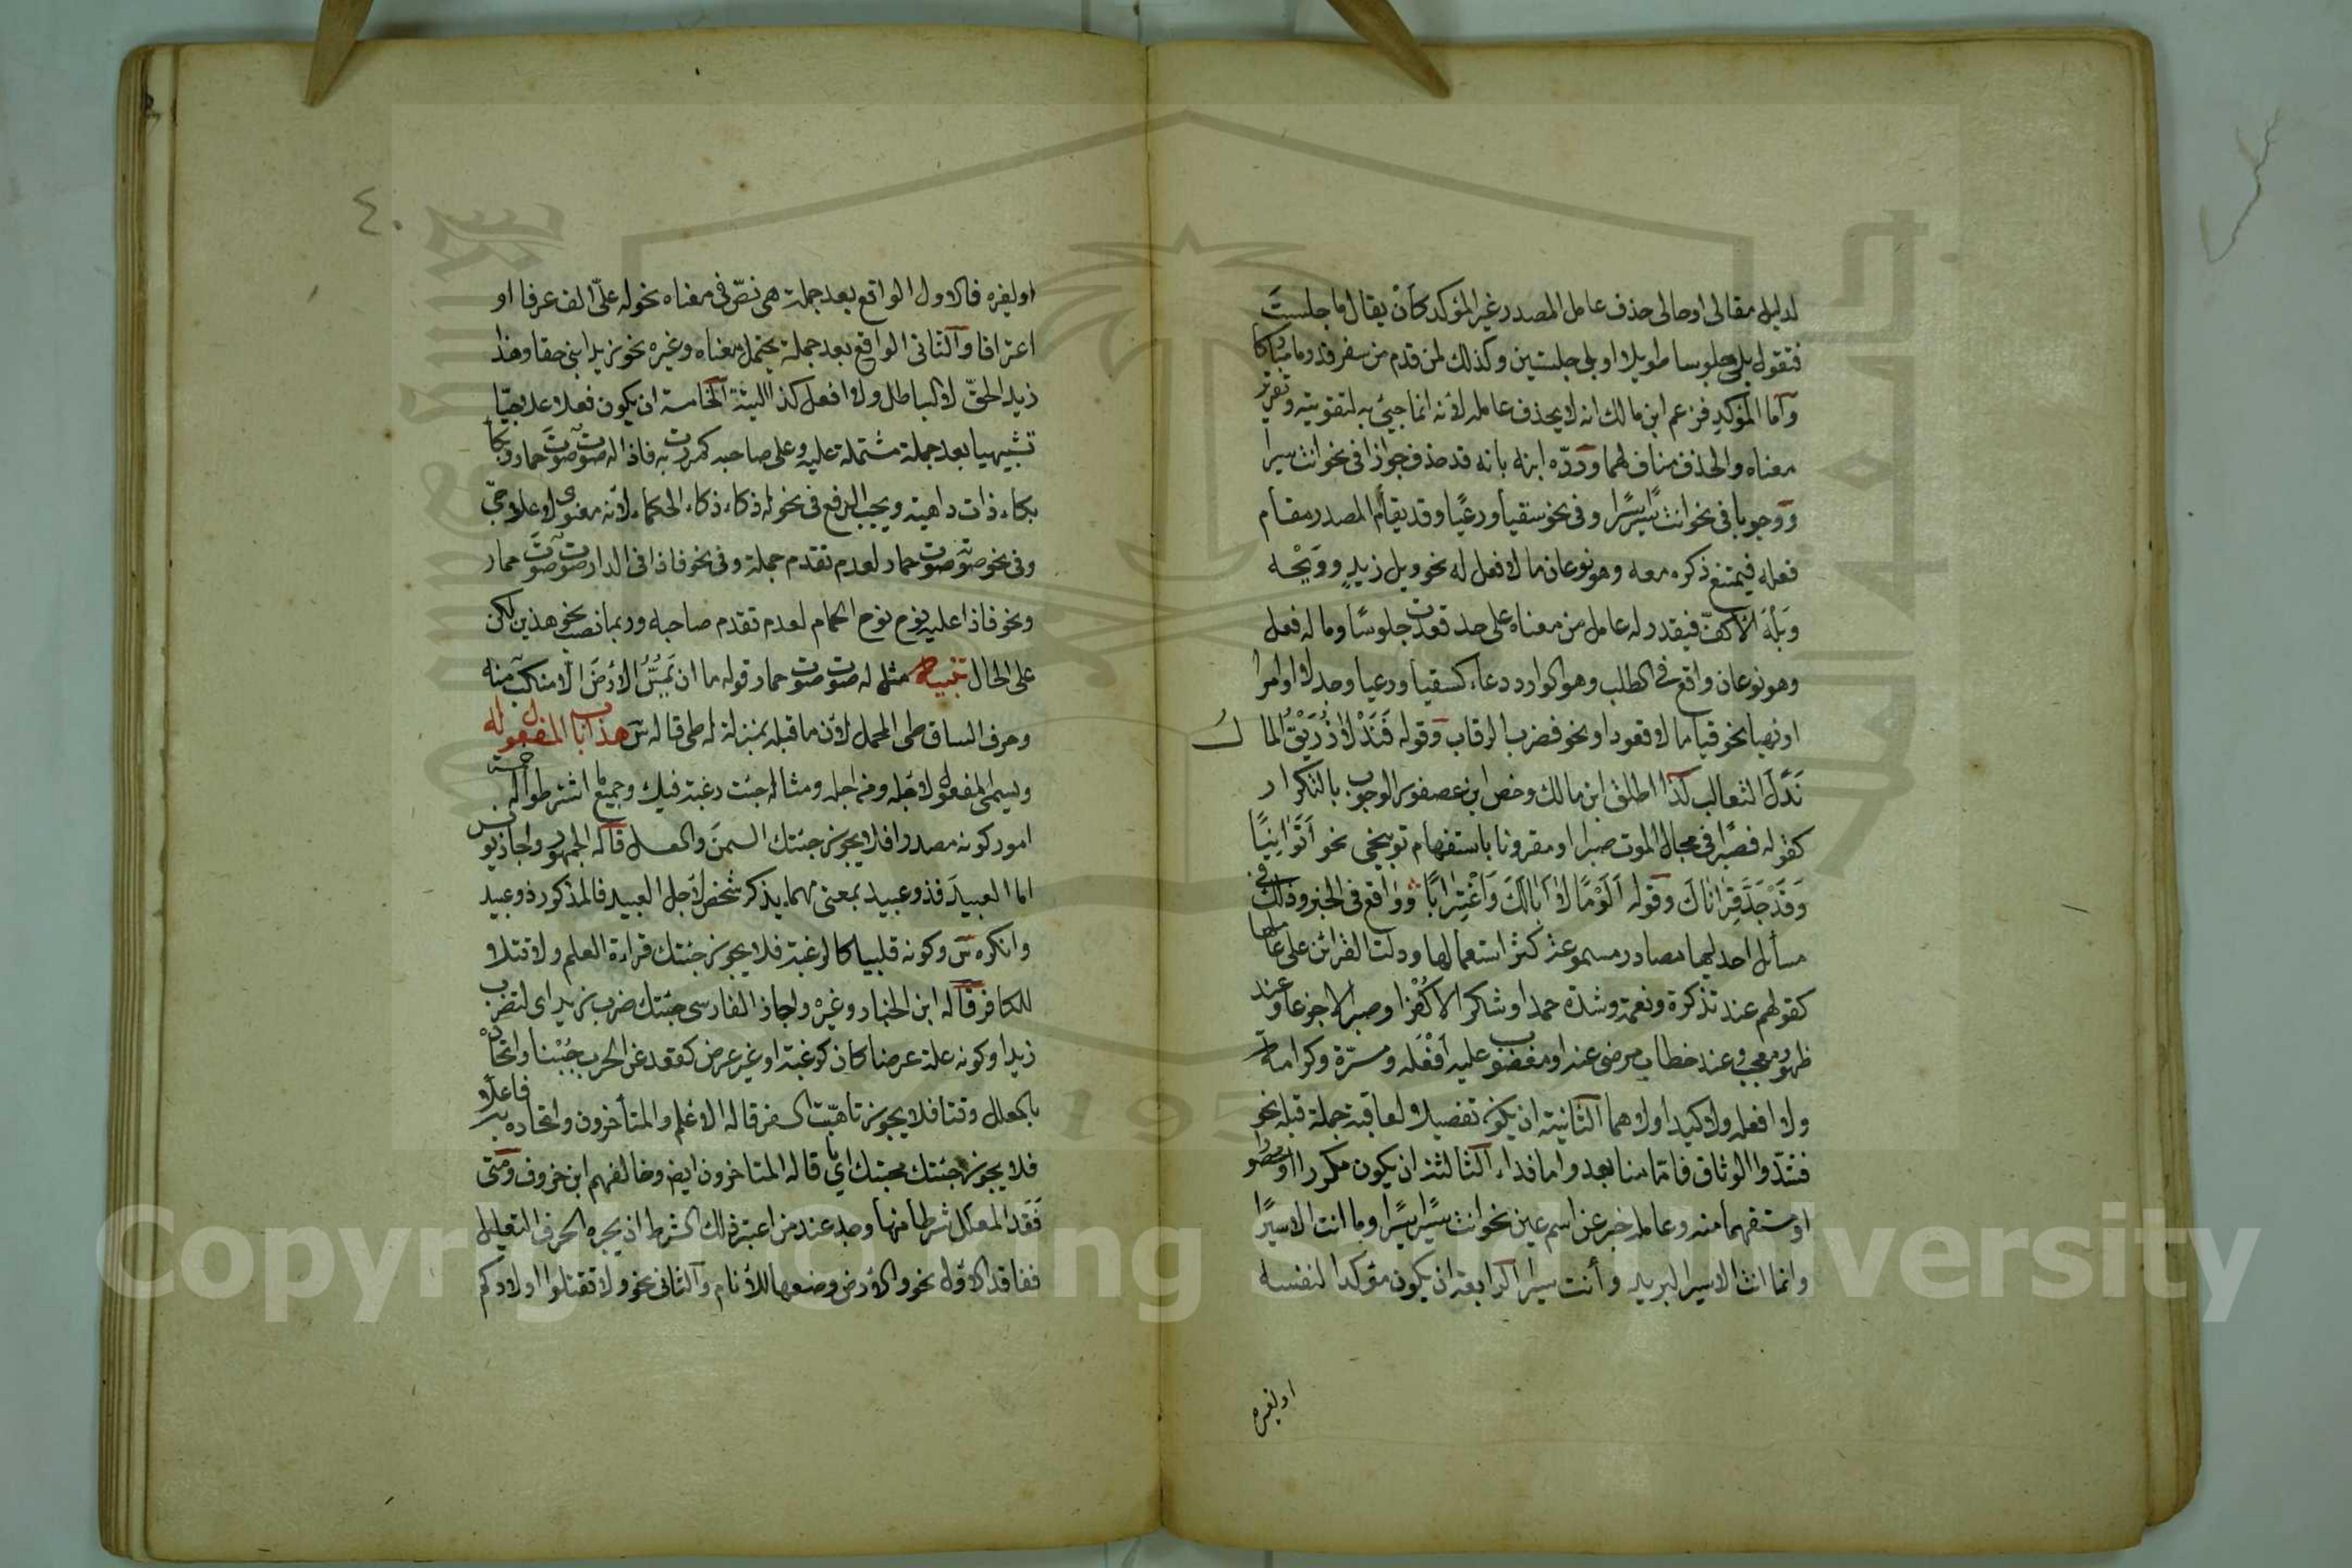 لدليل مقالى او حالى حذف عامل المصدر غير المؤكد كأن يقال ما جلستَ
فتقول بلى جلوسا طويلا او بلى جلستين وكذلك لمن قدم من سفر قدوما مباركا
وآما المؤكد فزعم ابن مالك انه لا يحذف عامله لأنه انما جيئ به لتقويته وتقرير
معناه والحذف مناف لهما وردّه ابنه بانه قد حذف جوازا فى نحو انت سيرا
ووجوبا فى نحو انت سيرًا سيرًا وفى نحو سقيا ورعيًا وقد يقام المصدر مقام
فعله فيمتنع ذكره معه وهو نوعان ما لا فعل له نحو ويل زيدٍ وويْحه
وبَلْهَ الأكفّ فيقدر له عامل من معناه على حد قعدت جلوسًا وما له فعل
وهو نوعان واقع فى الطلب وهو الوارد دعاء كسقيا ورعيا وجدلا او امرا
او نهيا نحو قياما لا قعودا ونحو فضرب الرقاب وقوله فَنَدْلًا زُرَيْقُ المالَ
نَدْلَ الثعالب كذا اطلق ابن مالك وخص ابن عصفور الوجوب بالتكرار
كقوله فصبرًا فى مجال الموت صبرا او مقرونا باستفهام توبيخى نحو أَتَوَانِيًا
وَقَدْ جَدَّ قُرَنَاؤكَ وقوله أَلُؤْمًا لا أَبَالَكَ وَاغْتِرَابًا وواقع فى الخبر وذلك فى
مسائل احديها مصادر مسموعة كثر استعمالها ودلت القرائن على عاملها
كقولهم عند تذكرة ونعمة وشدة حمدا وشكرا لا كُفْرًا وصبرا لا جزعا وعند
ظهور معجب وعند خطاب مرضى عنه او مغضوب عليه أفْعَله ومسرّة وكرامة
ولا افعله ولا كيدا ولا هما الثانية ان يكون تفصيلا لعاقبة جملة قبله نحو
فشدّوا الوثاق فامّا منا بعد واما فداء الثالثة ان يكون مكررا او محصورا
او مستفهما منه وعامله خبر عن اسم عين نحو انت سيرًا سيرًا وما انت الا سيرًا
وانما انت الا سير البريد وأنت سيرا الرابعة ان يكون مؤكدا لنفسه
او لغيره
٤٠
او لغيره فالاول الواقع بعد جملة هى نصّ فى معناه نحو له علىّ الف عرفا او
اعترافا والثانى الواقع بعد جملة يحتمل معناه وغيره نحو زيد ابنى حقا وهذا
زيد الحقّ لا الباطل ولا افعل كذا البتة الخامسة ان يكون فعلا علاجيّا
تشبيهيا بعد جملة مشتملة عليه وعلى صاحبه كمررت به فاذا له صوت صوتَ حمار وبكا
بكاء ذات داهية ويجب الرفع فى نحو له ذكاء ذكاء الحكماء لأنه معنوى لا علاجىّ
وفى نحو صوته صوت حمار لعدم تقدم جملة وفى نحو فاذا فى الدار صوت صوتَ حمار
ونحو فاذا عليه نوح نوح الحمام لعدم تقدم صاحبه وربما نصب نحو هذين لكن
على الحال تنبيه مثل له صوت صوت حمار قوله ما ان يَمَسُّ الأرضَ الّا منكب منه
وحرف الساق طى المحمل لأن ما قبله بمنزلة له طى قاله س هذا باب المفعول له
ويسمى المفعول لأجله ومن اجله ومثاله جئت رغبة فيك وجميع ما اشترطوا له خمسة
امور كونه مصدرا فلا يجوز جئتك السمنَ والعسل قاله الجمهور واجاز يونس
اما العبيدَ فذو عبيد بمعنى مهما يذكر شخص لأجل العبيد فالمذكور ذو عبيد
وانكره س وكونه قلبيا كالرغبة فلا يجوز جئتك قراءة العلم ولا قتلا
للكافر قاله ابن الخباز وغيره واجاز الفارسى جئتك ضرب زيد اى لتضرب
زيدا وكونه علة عرضا كان كرغبة او غير عرض كقعد عن الحرب جُبْنا واتحاده
بالمعلل وقتا فلا يجوز تاهّبت السفر قاله الاعلم والمتأخرون واتحاده به فاعلا
فلا يجوز جئتك محبتك اياى قاله المتاخرون ايض وخالفهم ابن خروف ومتى
فَقَد المعلّل شرطا منها وجب عند من اعتبر ذلك الشرط ان يجره الحرف التعليل
ففاقد الأوّل نحو والأرض وضعها للأنام والثانى نحو ولا تقتلوا اولادكم
Copyright © King Saud University